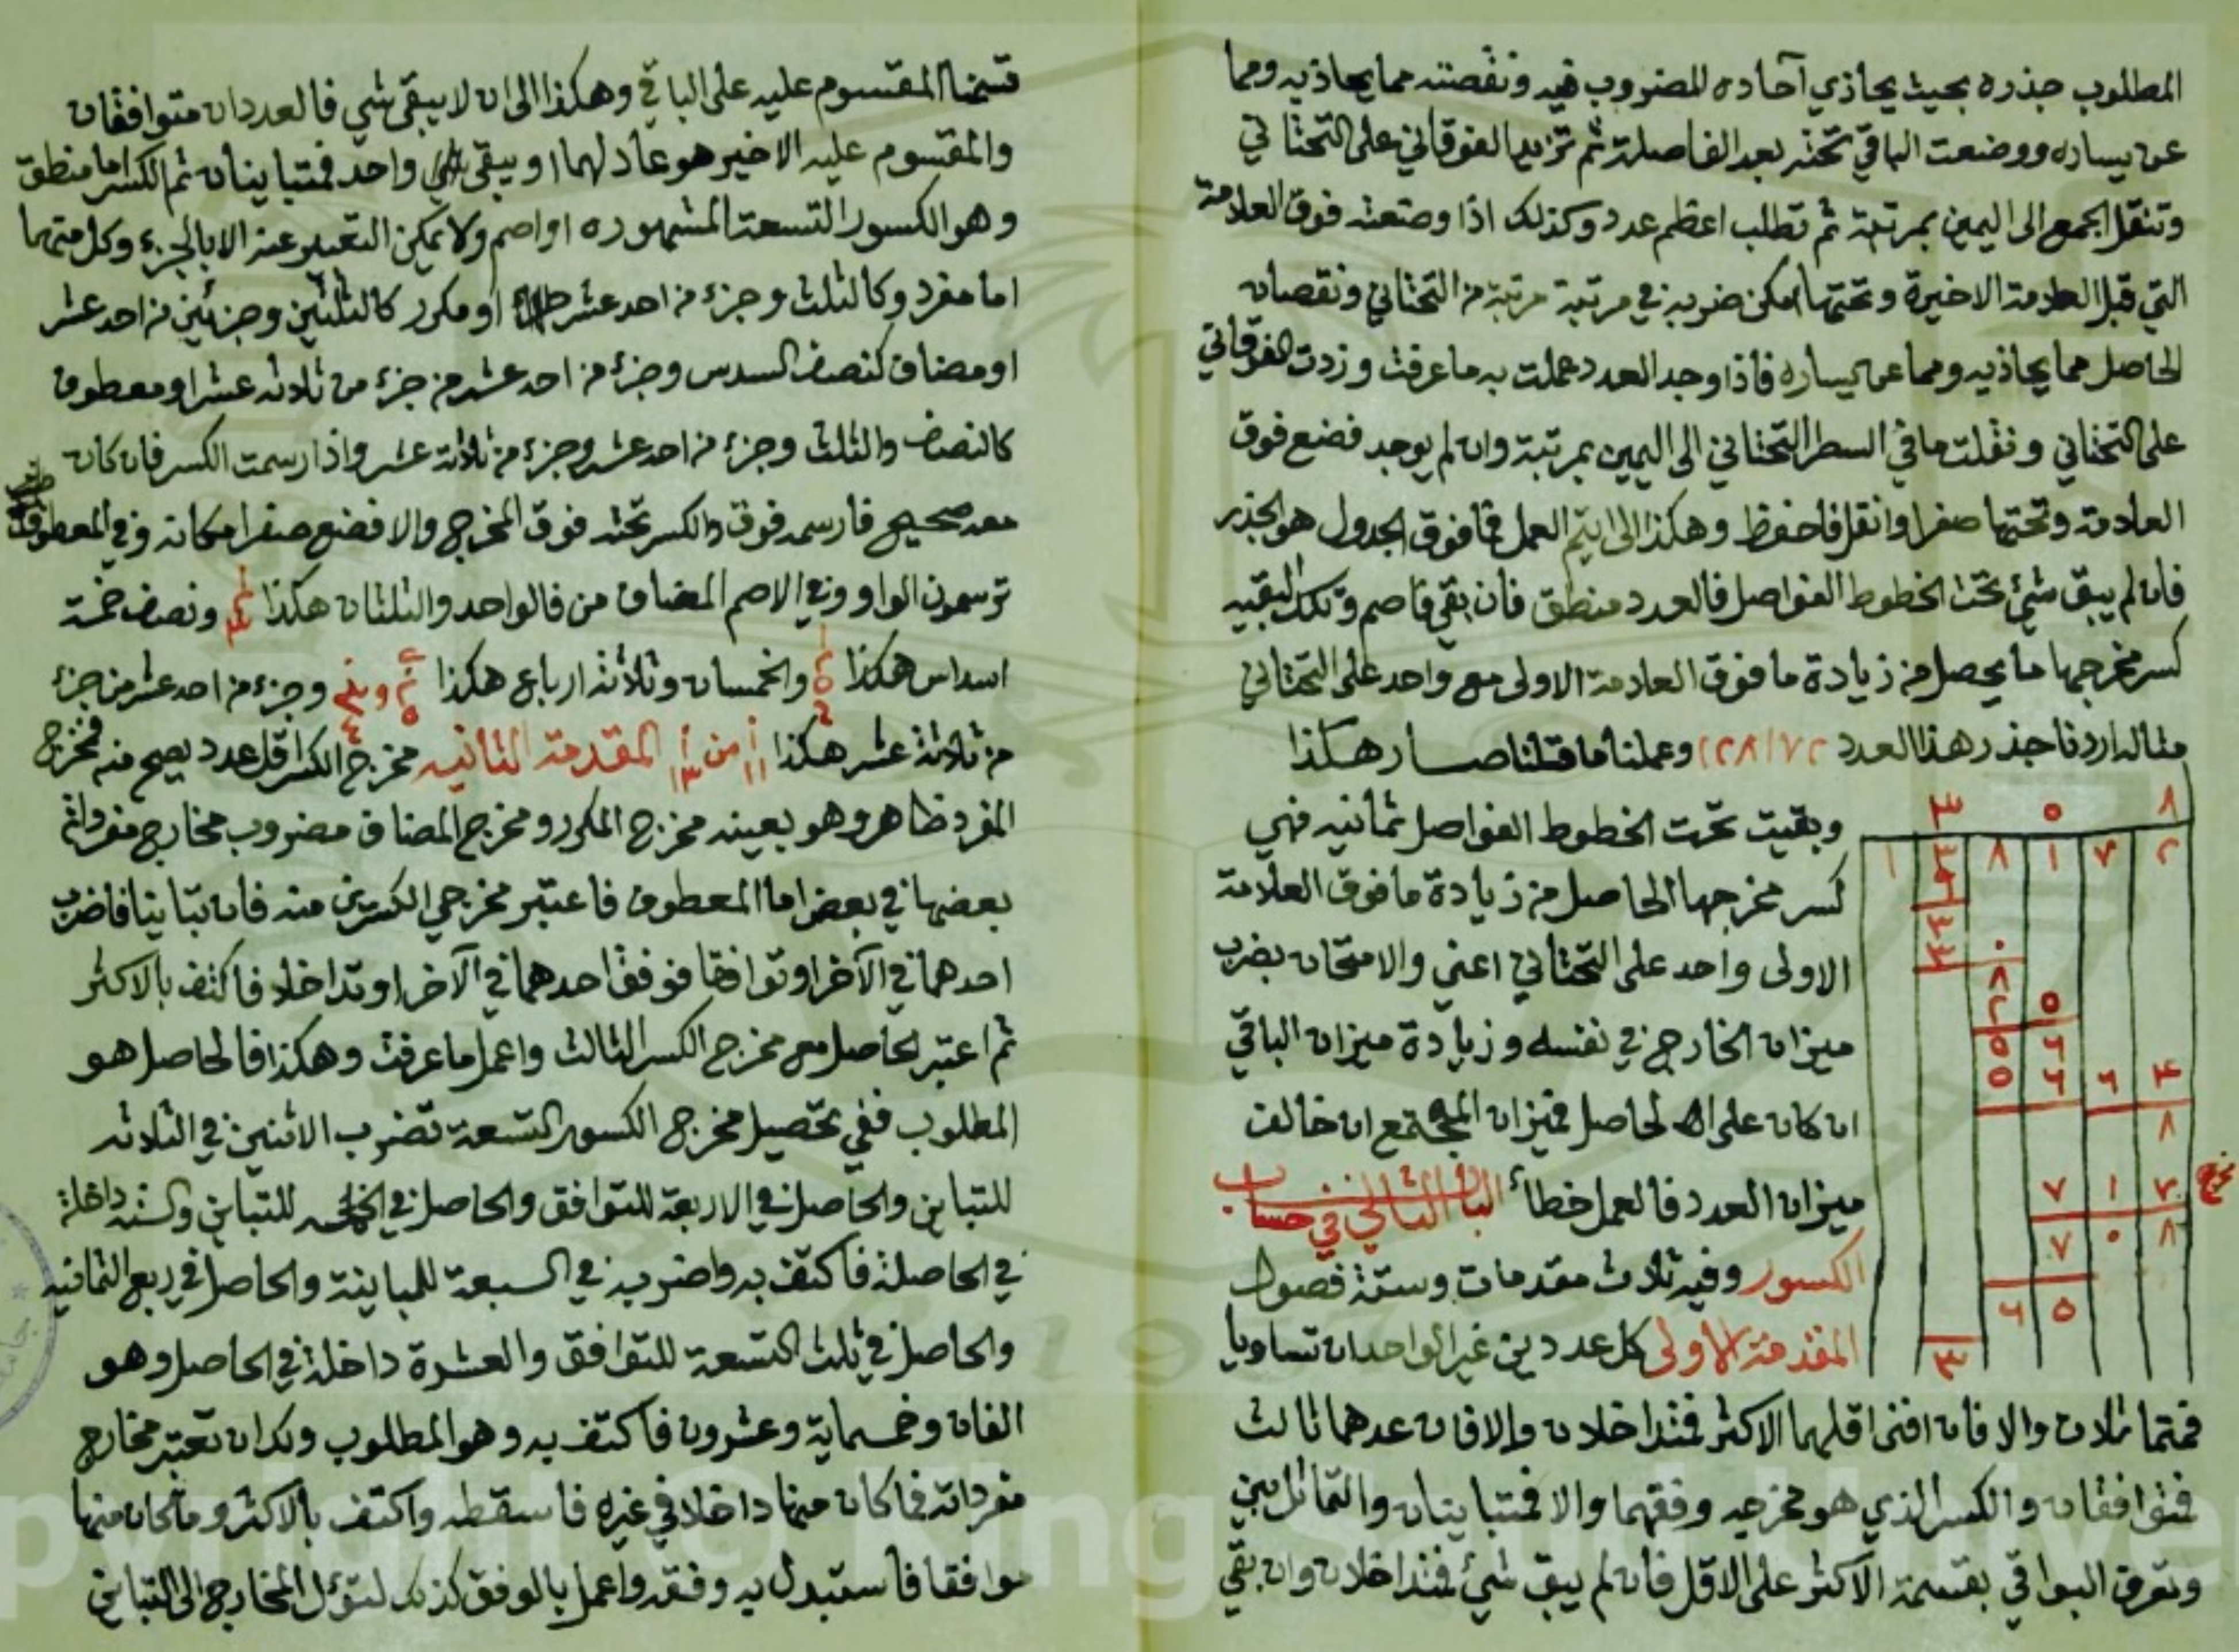 المطلوب جذره بحيث يحاذي آحاده المضروب فيه ونقصته مما يحاذيه ومما
عن يساره ووضعت الباقي تحته بعد الفاصلة ثم تزيد الفوقاني على التحتاني
وتنقل الجمع الى اليمين بمرتبة ثم تطلب اعظم عدد وكذلك اذا وضعته فوق العلامة
التي قبل العلامة الاخيرة وتحتها امكن ضربه في مرتبة مرتبة من التحتاني ونقصان
الحاصل مما يحاذيه ومما عن يساره فاذا وجد العدد عملت به ما عرفت وزدت الفوقاني
على التحتاني ونقلت ما في السطر التحتاني الى اليمين بمرتبة وان لم يوجد فضع فوق
العلامة وتحتها صفرا وانقل فاحفظ وهكذا الى ان يتم العمل فما فوق الجدول هو الجذر
فان لم يبق شئ تحت الخطوط الفواصل فالعدد منطق فان بقي فاصم وتلك البقيه
كسر مخرجها ما يحصل من زيادة ما فوق العلامة الاولى مع واحد على التحتاني
مثاله اردنا جذر هذا العدد ١٢٨١٧٢ وعملنا ما قلنا صار هكذا
٣ ٥ ٨
وبقيت تحت الخطوط الفواصل ثمانيه فهي
١ ٨ ١ ٧ ٢
كسر مخرجها الحاصل من زيادة ما فوق العلامة
الاولى واحد على التحتاني اعني والامتحان بضرب
ميزان الخارج في نفسه وزيادة ميزان الباقي
ان كان على الحاصل فميزان المجتمع ان خالف
ميزان العدد فالعمل خطاء الباب الثاني في حساب
الكسور وفيه ثلاث مقدمات وستة فصول
المقدمة الاولى كل عددين غير الواحد ان تساويا
فمتماثلان والا فان افنى اقلهما الاكثر فمتداخلان والا فان عدهما ثالث
فمتوافقان والكسر الذي هو مخرجه وفقهما والا فمتباينان والتماثل بين
وتعرف البواقي بقسمة الاكثر على الاقل فان لم يبق شئ فمتداخلان وان بقي
قسمنا المقسوم عليه على الباقي وهكذا الى ان لا يبقى شي فالعددان متوافقان
والمقسوم عليه الاخير هو عاد لهما او يبقى واحد فمتباينان ثم الكسر اما منطق
وهو الكسور التسعة المشهوره او اصم ولا يمكن التعبير عنه الا بالجزء وكل منهما
اما مفرد وكالثلث وجزء من احد عشر او مكرر كالثلثين وجزئين من احد عشر
او مضاف كنصف السدس وجزء من احد عشر من جزء من ثلاثه عشر او معطوف
كالنصف والثلث وجزء من احد عشر وجزء من ثلاثة عشر واذا رسمت الكسر فان كان
معه صحيح فارسمه فوق والكسر تحته فوق المخرج والا فضع صفرا مكانه وفي المعطوف
ترسمون الواو وفي الاصم المضاف من فالواحد والثلثان هكذا ونصف خمسة
اسداس هكذا والخمسان وثلاثة ارباع هكذا وجزء من احد عشر من جزء
من ثلاثة عشر هكذا ١ ١١ من ١ ١٣ المقدمة الثانيه مخرج الكسر اقل عدد يصح منه فمخرج
المفرد ظاهر وهو بعينه مخرج المكرر ومخرج المضاف مضروب مخارج مفرداته
بعضها في بعض اما المعطوف فاعتبر مخرجي الكسرين منه فان تباينا فاضرب
احدهما في الآخر او توافقا فوفق احدهما في الآخر او تداخلا فاكتف بالاكثر
ثم اعتبر الحاصل مع مخرج الكسر الثالث واعمل ما عرفت وهكذا فالحاصل هو
المطلوب ففي تحصيل مخرج الكسور التسعة تضرب الاثنين في الثلاثه
للتباين والحاصل في الاربعة للتوافق والحاصل في الخمسه للتباين والسته داخلة
في الحاصلة فاكتف به واضربه في السبعة للمباينة والحاصل في ربع الثمانيه
والحاصل في ثلث التسعة للتوافق والعشرة داخلة في الحاصل وهو
الفان وخمسماية وعشرون فاكتف به وهو المطلوب ولك ان تعتبر مخارج
مفرداته فما كان منها داخلا في غيره فاسقطه واكتف بالاكثر وما كان منها
موافقا فاستبدل به وفقه واعمل بالوفق كذلك لتؤل المخارج الى التباين